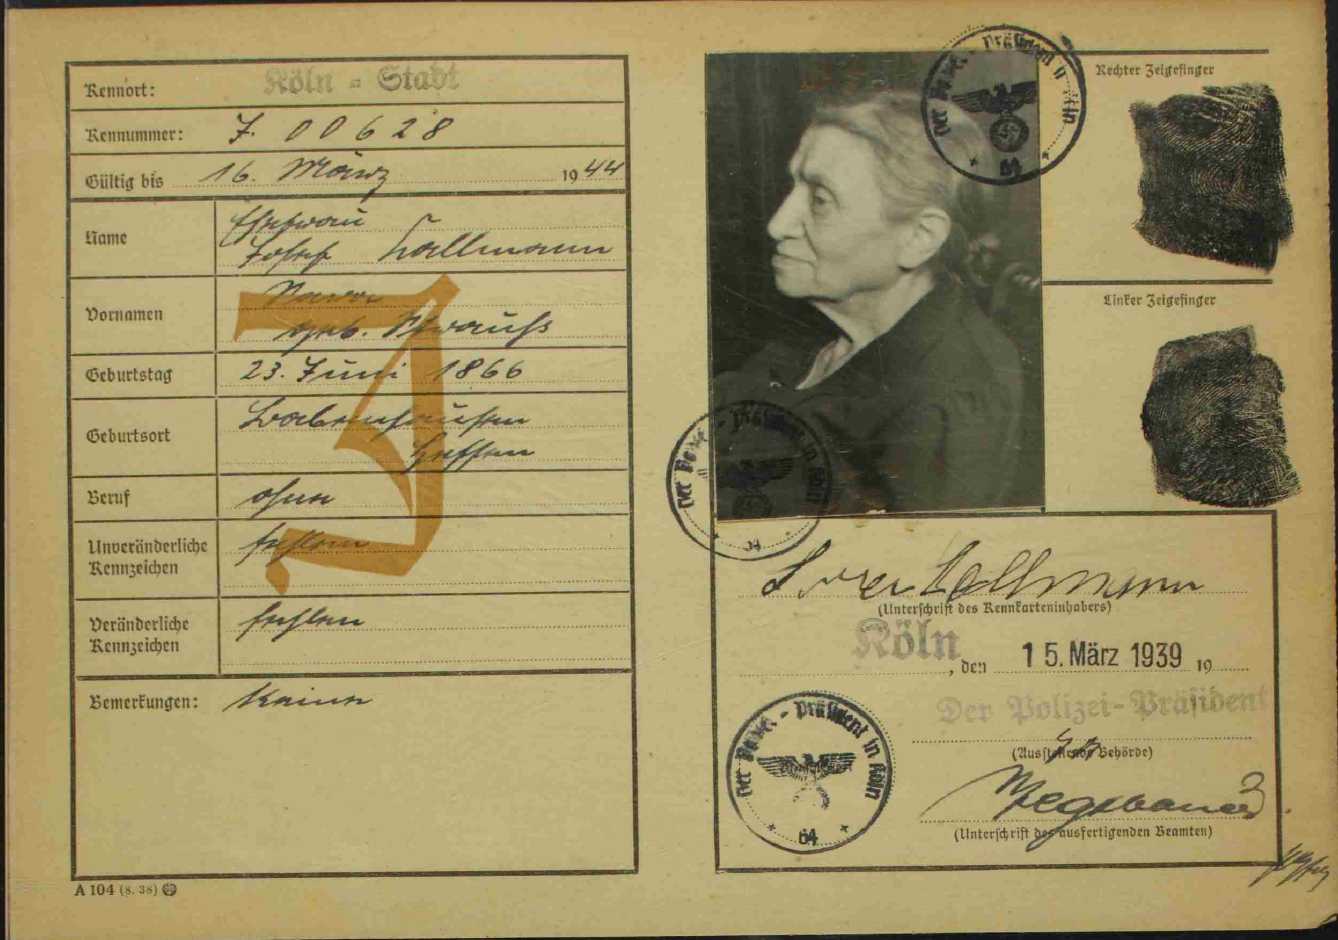 Kennort: Köln - Stadt
Kennummer: J. 00628
Gültig bis 16. März 1944
Name Ehefrau
Josef Kallmann
Vornamen
geb. Strauß
Geburtstag 23. Juni 1866
Geburtsort Babenhausen
Hessen
Beruf ohne
Unveränderliche
Kennzeichen fehlen
Veränderliche
Kennzeichen fehlen
Bemerkungen: Keine
A 104 (8. 38)
J
Rechter Zeigefinger
Linker Zeigefinger
Der Polizei-Präsident in Köln
64
Der Polizei-Präsident in Köln
64
Kallmann
(Unterschrift des Kennkarteninhabers)
Köln, den 15. März 1939 19
Der Polizei-Präsident
(Ausstellende Behörde)
(Unterschrift des ausfertigenden Beamten)
Der Polizei-Präsident in Köln
64